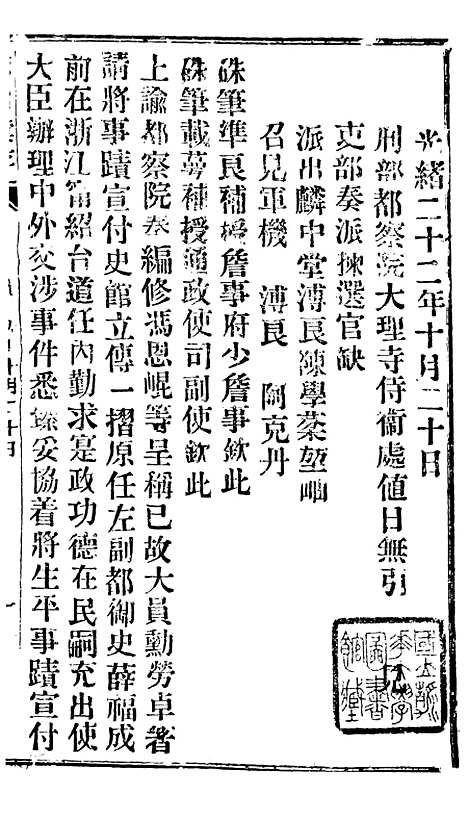 光緒二十二年十月二十日
刑部都察院大理寺侍衞處値日無引
吏部奏派揀選官缺
派出麟中堂溥良陳學棻堃岫
召見軍機　溥良　阿克丹
硃筆準良補授詹事府少詹事欽此
硃筆載萼補授通政使司副使欽此
上諭都察院奏編修馮恩崐等呈稱已故大員勳勞卓著
請將事蹟宣付史館立傳一摺原任左副都御史薛福成
前在浙江甯紹台道任內勤求寔政功德在民嗣充出使
大臣辦理中外交涉事件悉臻妥協着將生平事蹟宣付